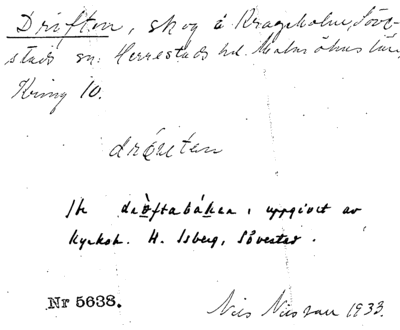 Driften, skog å Krageholm, Söv-
stads sn. Herrestads hd. Malmöhus län,
Kring 10.
dröueten
Jk dröftabåken, uppgivet av
Kyrkoh. H. Isberg, Sövestad.
Nr 5638.
Nils Nilsson 1933.